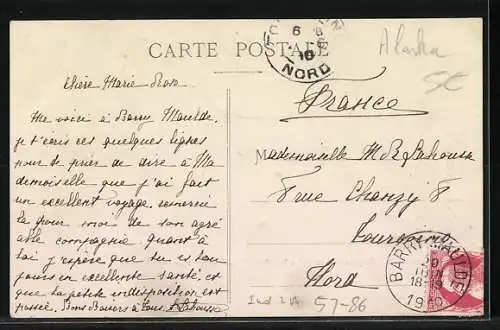 CARTE POSTALE
6 6
10
NORD
Alaska
5€
Chère Marie Rose
Me voici à Barry Maulde,
je t'écris ces quelques lignes
pour te prier de dire à Ma
demoiselle que j'ai fait
un excellent voyage, remercie
la pour moi de son agré
able compagnie quant à
toi j'espère que tu es tou
jours en excellente santé et
que ta petite indisposition est
passée. Bons Baisers à tous
France
Mademoiselle M R
8 rue Chanzy 8
Tourcoing
Nord
BARRY-MAULDE
18-19
1910
57-86